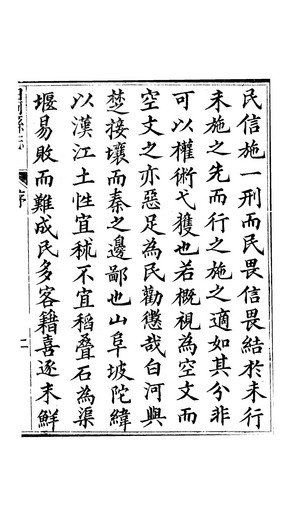 民信施一刑而民畏信畏結於未行
未施之先而行之施之適如其分非
可以權術弋獲也若概視為空文而
空文之亦惡足為民勸懲哉白河與
楚接壤而秦之邊鄙也山阜坡陀緯
以漢江土性宜秫不宜稻疊石為渠
堰易敗而難成民多客籍喜逐末鮮
白河縣志
序
二